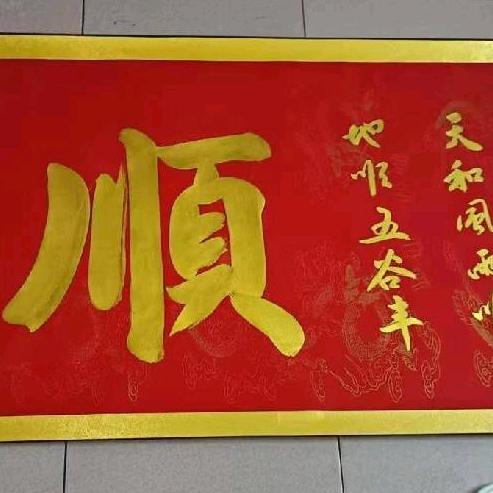 天和風雨
地顺五谷丰
順